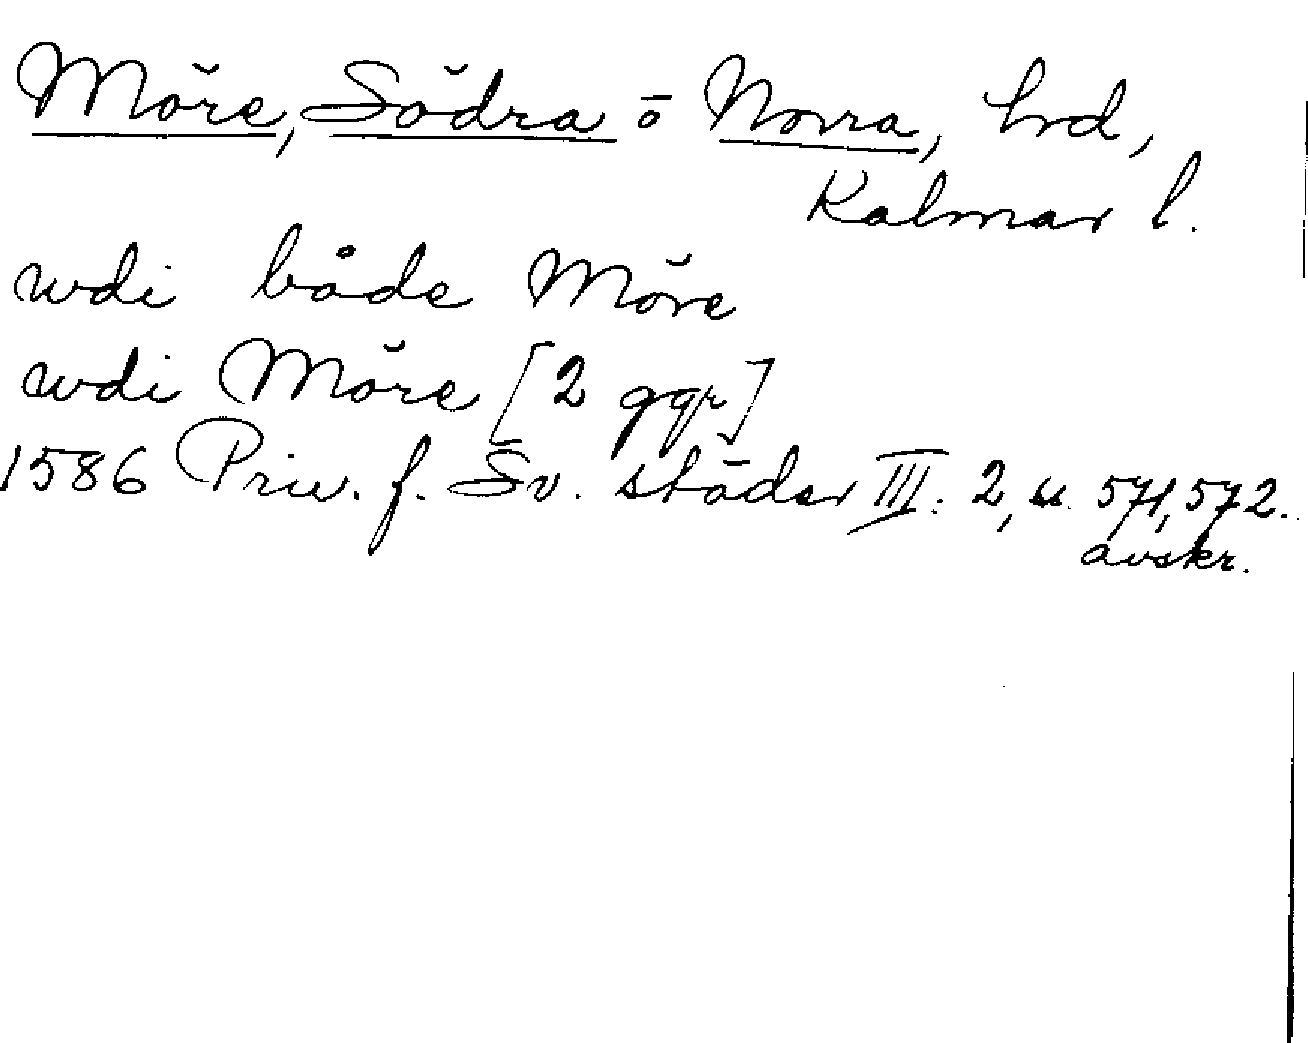 Möre, Södra o Norra, hrd,
Kalmar l.
wdi både Möre
wdi Möre [2 ggr]
1586 Priv. f. Sv. städer III: 2, s. 571, 572.
avskr.